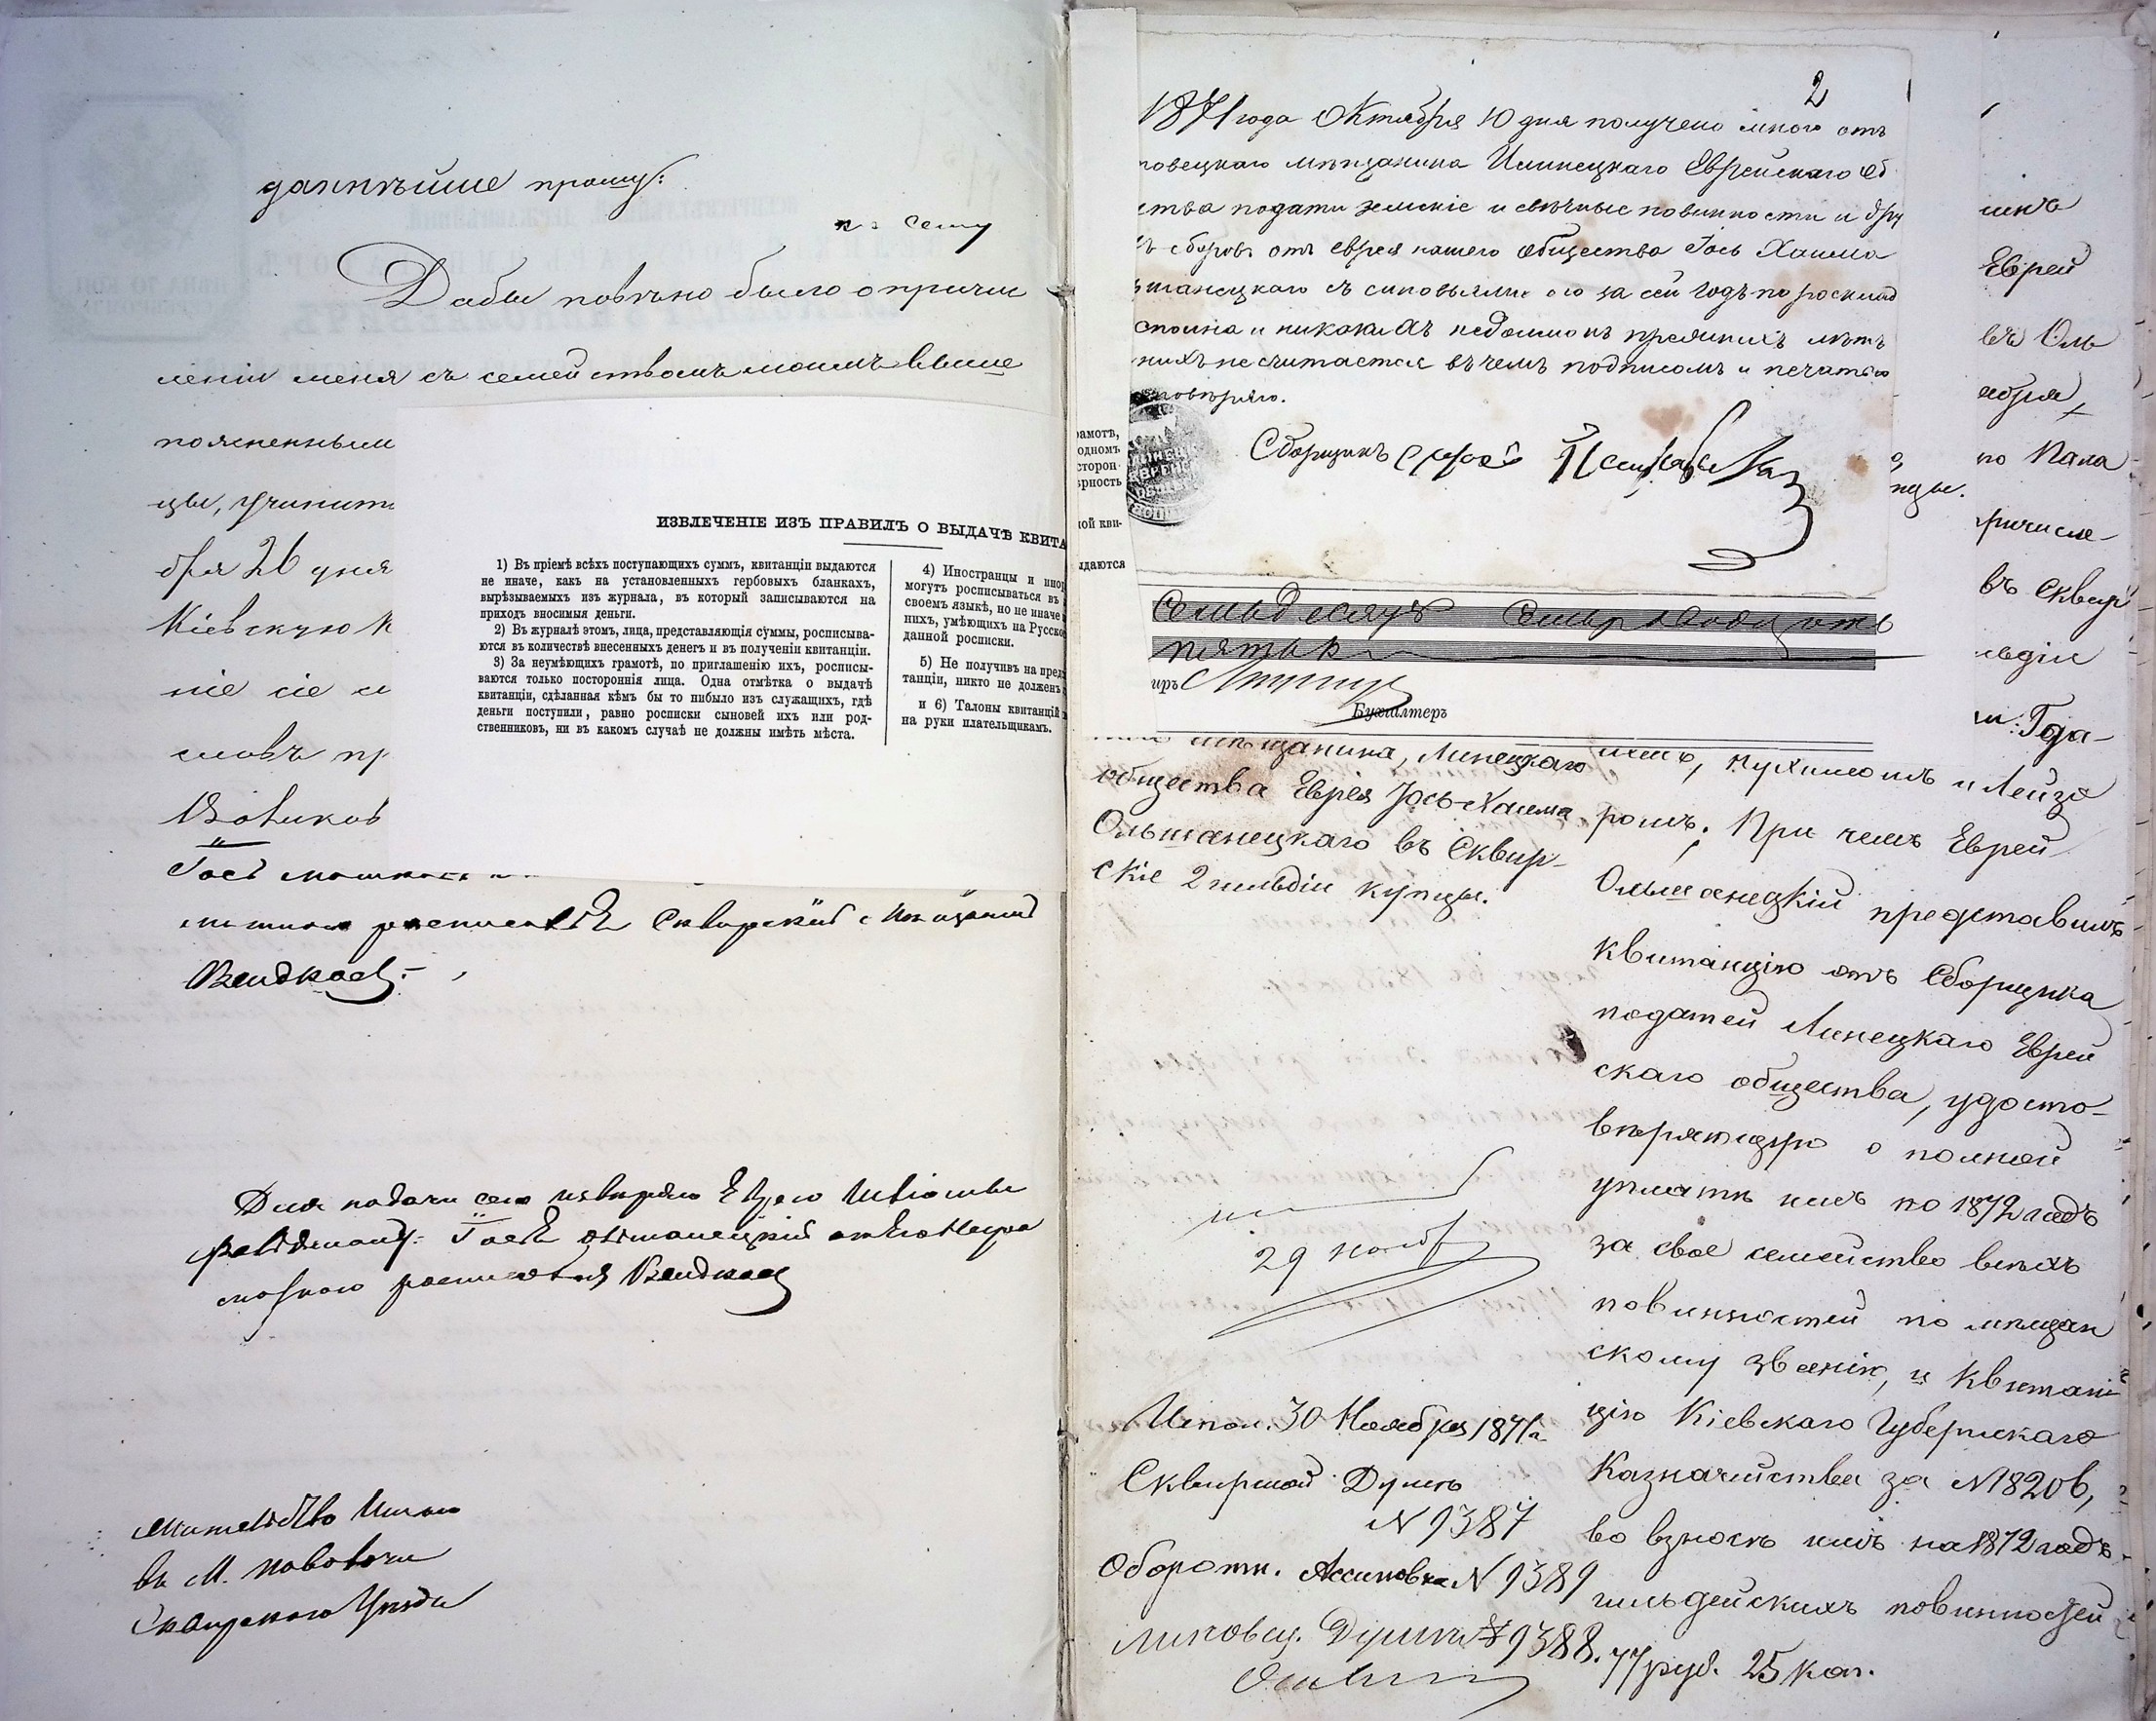 далнѣйше прошу:
къ сему
Дабы повѣлено было о причис
леніи меня съ семействомъ моимъ выше
поясненнымъ
цы, учинить
бря 26 дня
Кіевскую К
ніе сіе
словъ пр
Іось
росписался Сквирскій Мѣщанинъ
ИЗВЛЕЧЕНІЕ ИЗЪ ПРАВИЛЪ О ВЫДАЧѢ КВИТА
1) Въ пріемѣ всѣхъ поступающихъ суммъ, квитанціи выдаются
не иначе, какъ на установленныхъ гербовыхъ бланкахъ,
вырѣзываемыхъ изъ журнала, въ который записываются на
приходъ вносимыя деньги.
2) Въ журналѣ этомъ, лица, представляющія суммы, росписыва-
ются въ количествѣ внесенныхъ денегъ и въ полученіи квитанціи.
3) За неумѣющихъ грамотѣ, по приглашенію ихъ, росписы-
ваются только постороннія лица. Одна отмѣтка о выдачѣ
квитанціи, сдѣланная кѣмъ бы то нибыло изъ служащихъ, гдѣ
деньги поступили, равно росписки сыновей ихъ или род-
ственниковъ, ни въ какомъ случаѣ не должны имѣть мѣста.
4) Иностранцы и иног
могутъ росписываться въ
своемъ языкѣ, но не иначе
нихъ, умѣющихъ на Русско
данной росписки.
5) Не получивъ на пред
танціи, никто не долженъ
и 6) Талоны квитанцій
на руки плательщикамъ.
Для подачи сего ввѣряю
росписался
Жительство Имѣю
въ М. Паволочи
Сквирскаго Уѣзда
2
1871 года Октября 10 дня получено мною отъ
повецкаго мѣщанина Илинецкаго Еврейскаго Об
ства подати земскіе и свѣчные повинности и дру
ъ сборовъ отъ еврея нашего общества Іось Хаима
ьшанецкаго съ сыновьями его за сей годъ по расклад
сполна и никакихъ недоимокъ прежнихъ лѣтъ
нихъ не считается въ чемъ подписомъ и печатью
овѣряю.
Сборщикъ
рамотѣ,
одномъ
сторон-
рность
ной кви-
идаются
Семьдесятъ Семь р двадцать
пять к
иръ
Бухгалтеръ
мѣщанина, Линецкаго
общества Еврея Іось-Хаима
Ольшанецкаго въ Сквир-
скіе 2 гильдіи купцы.
29 нояб
Испол. 30 Ноября 1871 г.
Сквирской Думѣ
N 9387
Оборотн. Ассиновка N 9389
Липовец. Думѣ N 9388.
Еврей
въ Оль
ября,
по Пана
причисле-
въ Сквир
льдіи
нцы.
имъ, Нухимомъ и Лейзо
ромъ. При чемъ Еврей
Ольшанецкій представилъ
квитанцію отъ Сборщика
податей Линецкаго Еврей
скаго общества, удосто-
вѣряющую о полной
уплатѣ имъ по 1872 годъ
за свое семейство всѣхъ
повинностей по мѣщан
скому званію, и Квитан
цію Кіевскаго Губернскаго
Казначейства за N 18206,
во взносѣ имъ на 1872 годъ
гильдейскихъ повинностей
77 руб. 25 коп.